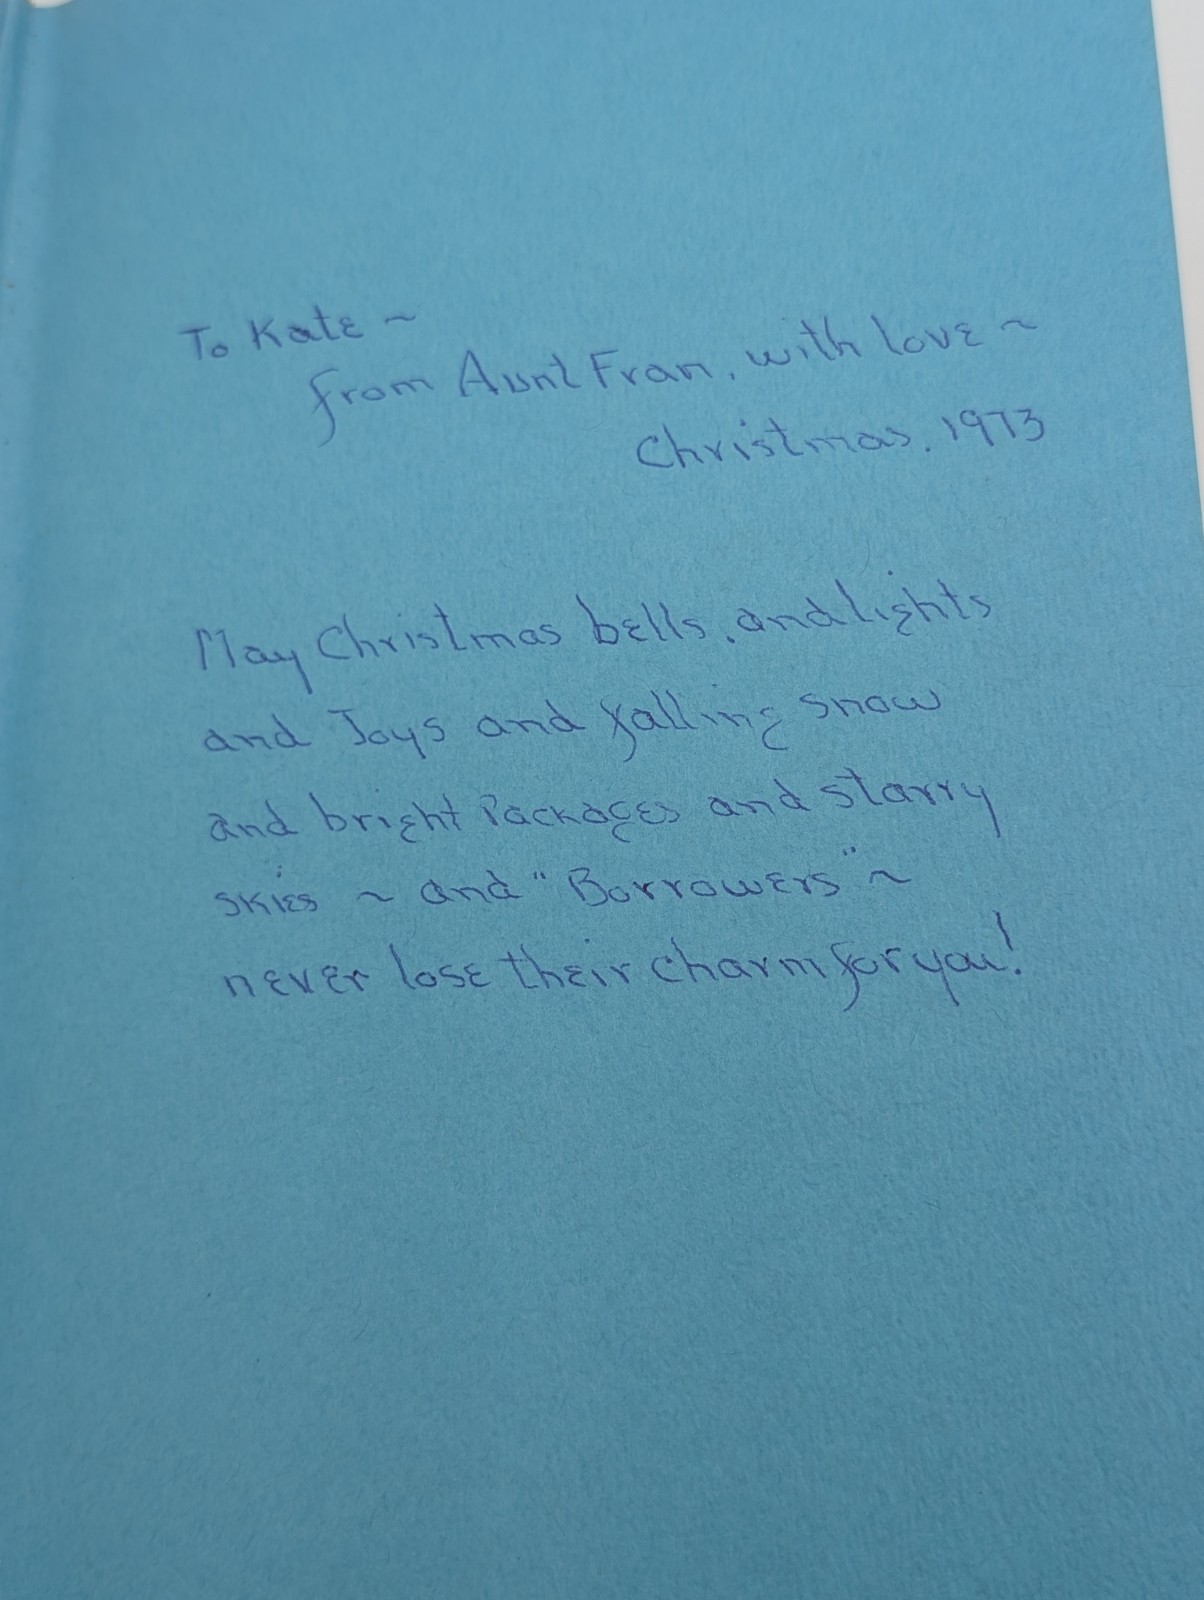 To Kate ~
from Aunt Fran, with love ~
Christmas, 1973
May Christmas bells, and lights
and Joys and falling snow
and bright Packages and starry
skies ~ and "Borrowers" ~
never lose their charm for you!